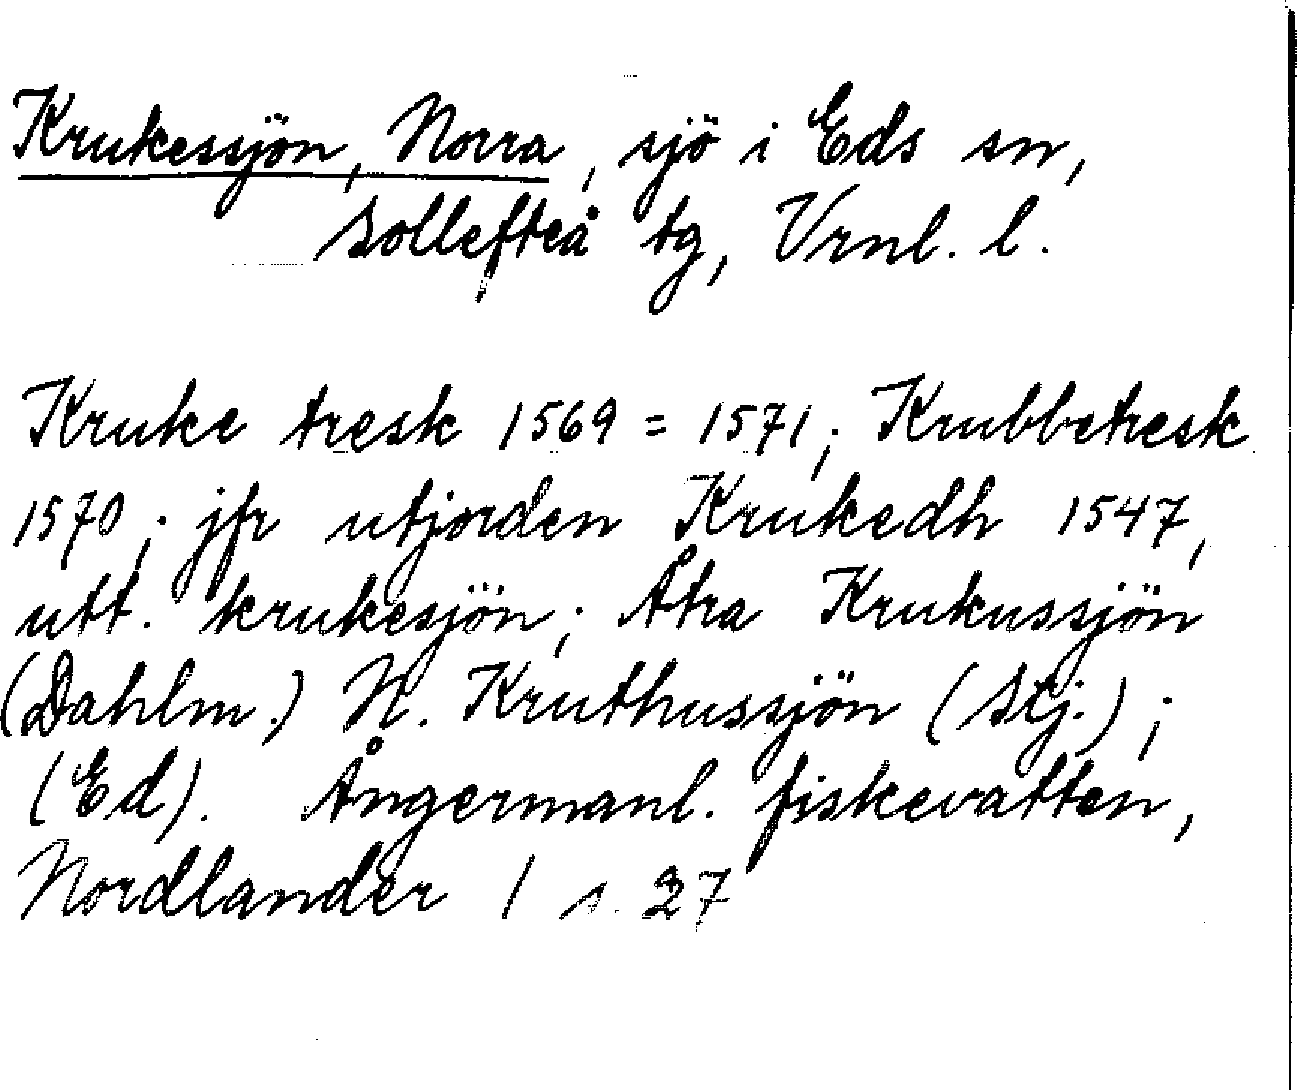 Krukessjön, Norra, sjö i Eds sn,
Sollefteå tg, Vrnl. l.
Kruke tresk 1569 = 1571; Krubbetresk
1570; jfr utjorden Krukedh 1547,
utt. krukesjön; Åtra Krukussjön
(Dahlm.) N. Kruthussjön (Stj.);
(Ed). Ångermanl. fiskevatten,
Nordlander I s. 27